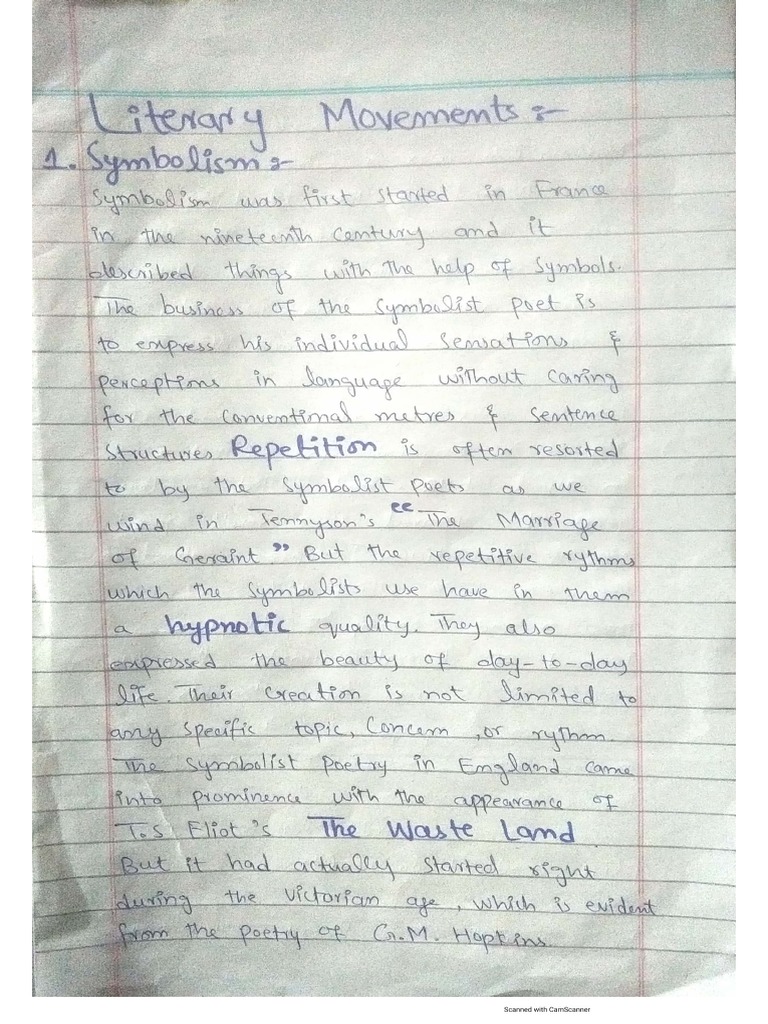 Literary Movements :-
1. Symbolism :-
Symbolism was first started in France
in the nineteenth century and it
described things with the help of symbols.
The business of the symbolist poet is
to express his individual sensations &
perceptions in language without caring
for the conventional metres & sentence
structures. Repetition is often resorted
to by the symbolist poets as we
wind in Tennyson's "The Marriage
of Geraint" But the repetitive rythms
which the symbolists use have in them
a hypnotic quality. They also
expressed the beauty of day-to-day
life. Their creation is not limited to
any specific topic, concern, or rythm.
The symbolist poetry in England came
into prominence with the appearance of
T.S Eliot's The Waste Land.
But it had actually started right
during the victorian age, which is evident
from the poetry of G.M. Hopkins.
Scanned with CamScanner